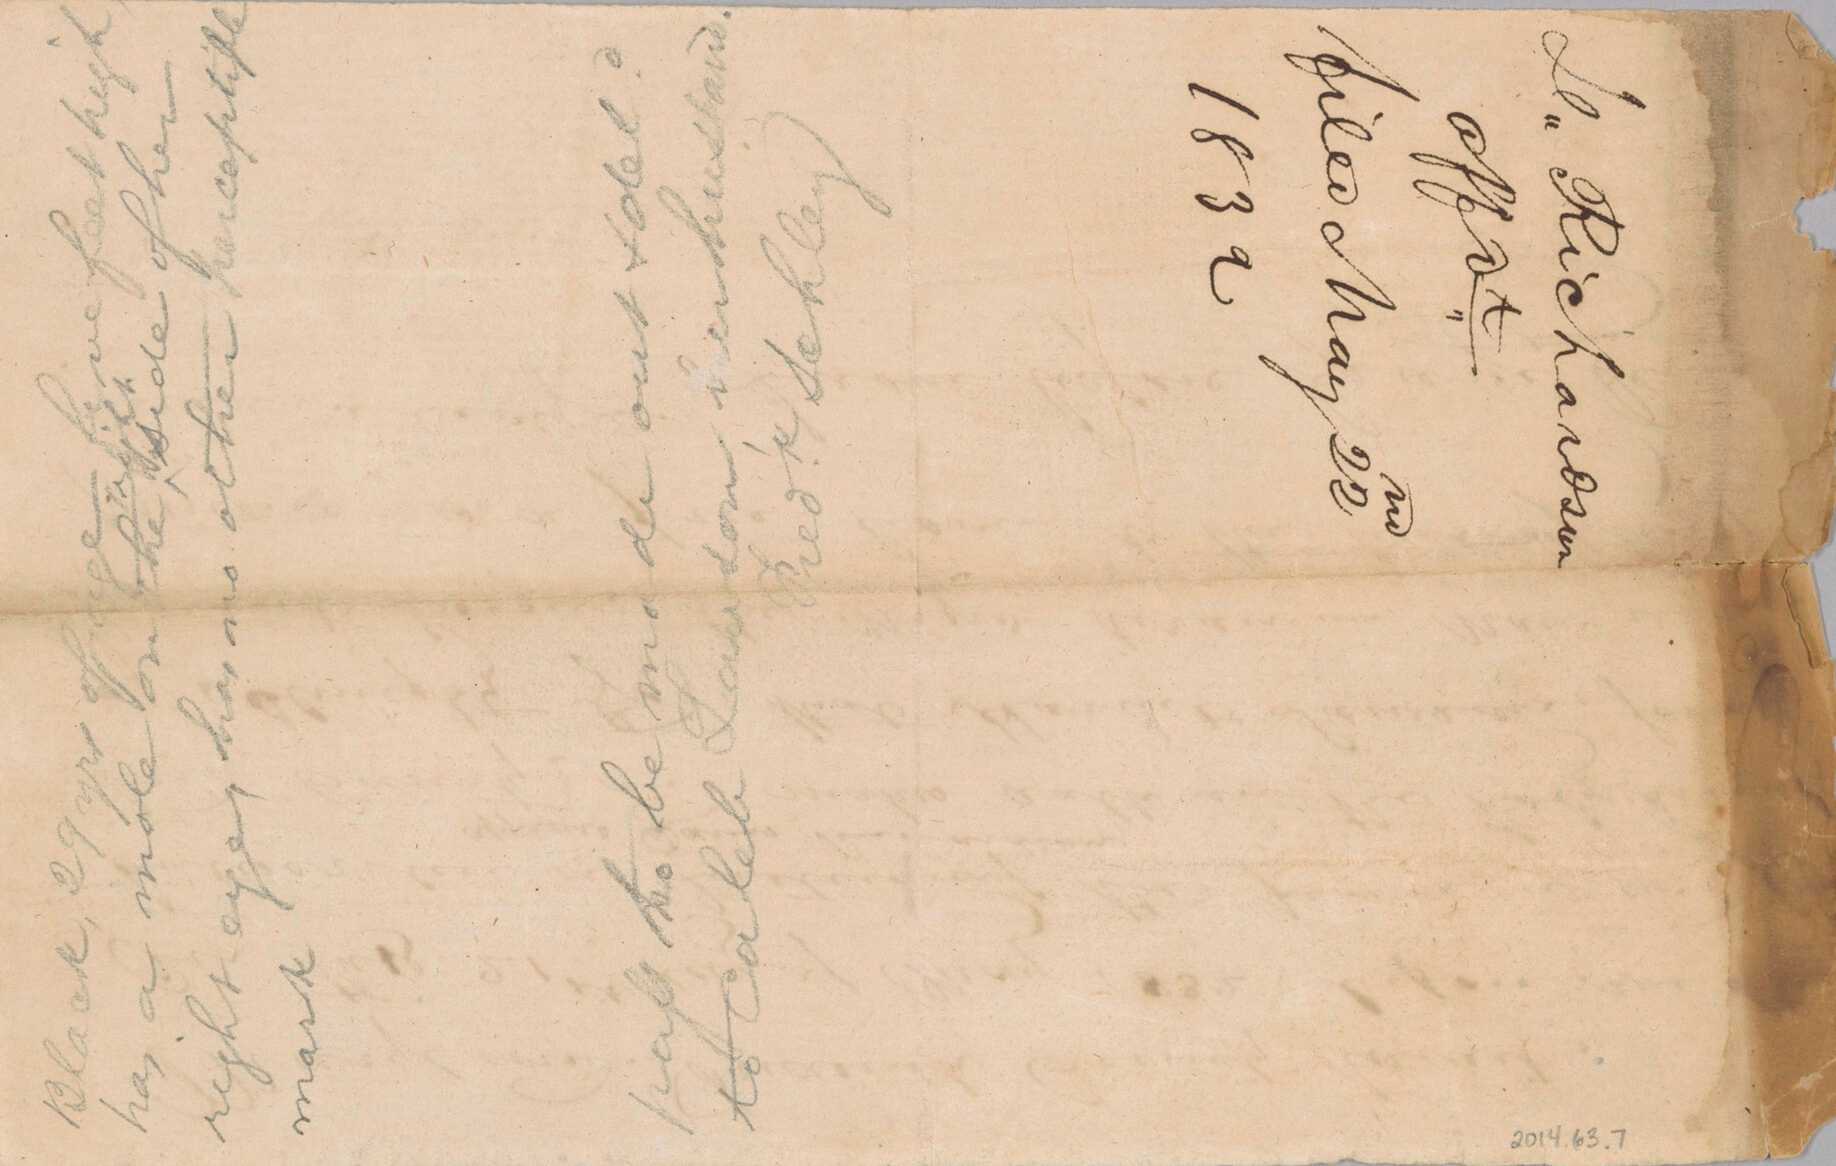 Black, 29 yrs of age five feet high,
has a mole on the right side of her
right eye, has no other perceptible
mark
pass to be made out & del.d
to Caleb Lawdom her husband.
Fred'k Schley
Richardson
affvt
filed May 22nd
1832
2014.63.7